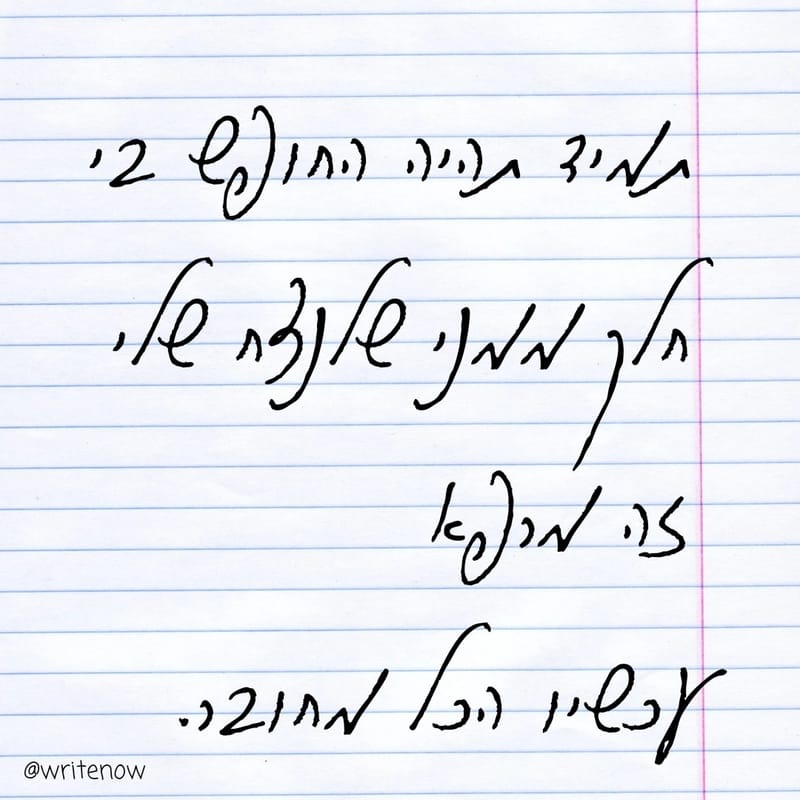 תמיד תהיה החופש בי
חלק ממני שלנצח שלי
זה מרפא
עכשיו הכל מחובר.
@writenow